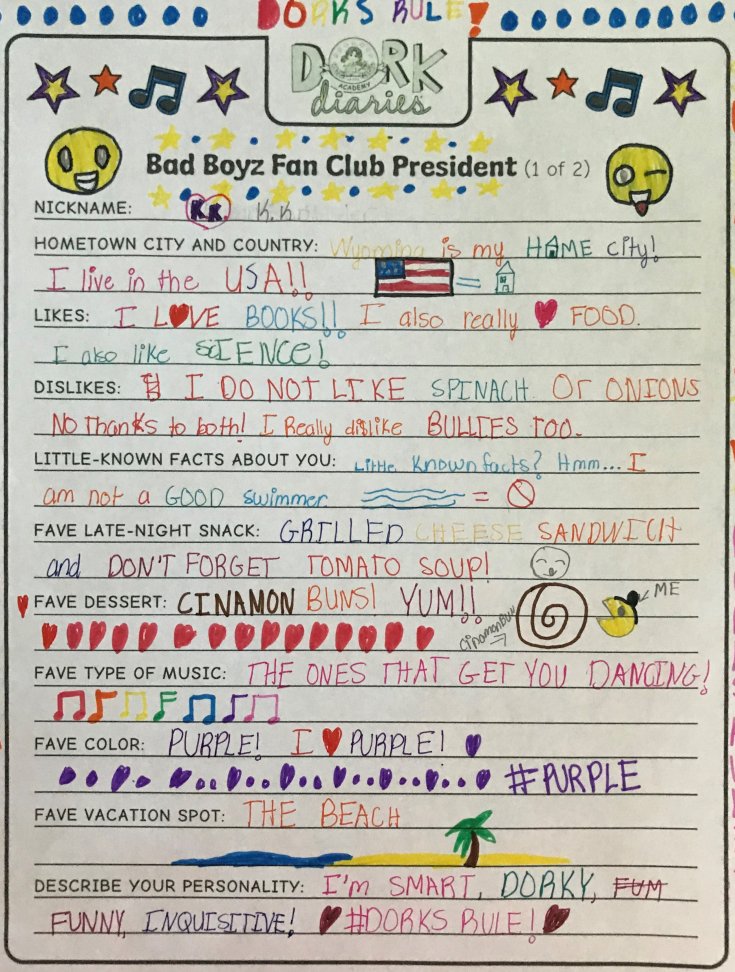 DORKS RULE!
DORK
ACADEMY
diaries
Bad Boyz Fan Club President (1 of 2)
NICKNAME: KK K.K
HOMETOWN CITY AND COUNTRY: Wyoming is my HOME city!
I live in the USA!! =
LIKES: I LOVE BOOKS!! I also really FOOD.
I also like SCIENCE!
DISLIKES: I DO NOT LIKE SPINACH Or ONIONS
No thanks to both! I Really dislike BULLIES TOO.
LITTLE-KNOWN FACTS ABOUT YOU: Little Known facts? Hmm... I
am not a GOOD swimmer =
FAVE LATE-NIGHT SNACK: GRILLED CHEESE SANDWICH
and DON'T FORGET TOMATO SOUP!
FAVE DESSERT: CINAMON BUNS! YUM!! ME
cinamonbun
FAVE TYPE OF MUSIC: THE ONES THAT GET YOU DANCING!
FAVE COLOR: PURPLE! I PURPLE!
#PURPLE
FAVE VACATION SPOT: THE BEACH
DESCRIBE YOUR PERSONALITY: I'm SMART, DORKY, FUM
FUNNY, INQUISITIVE! #DORKS RULE!